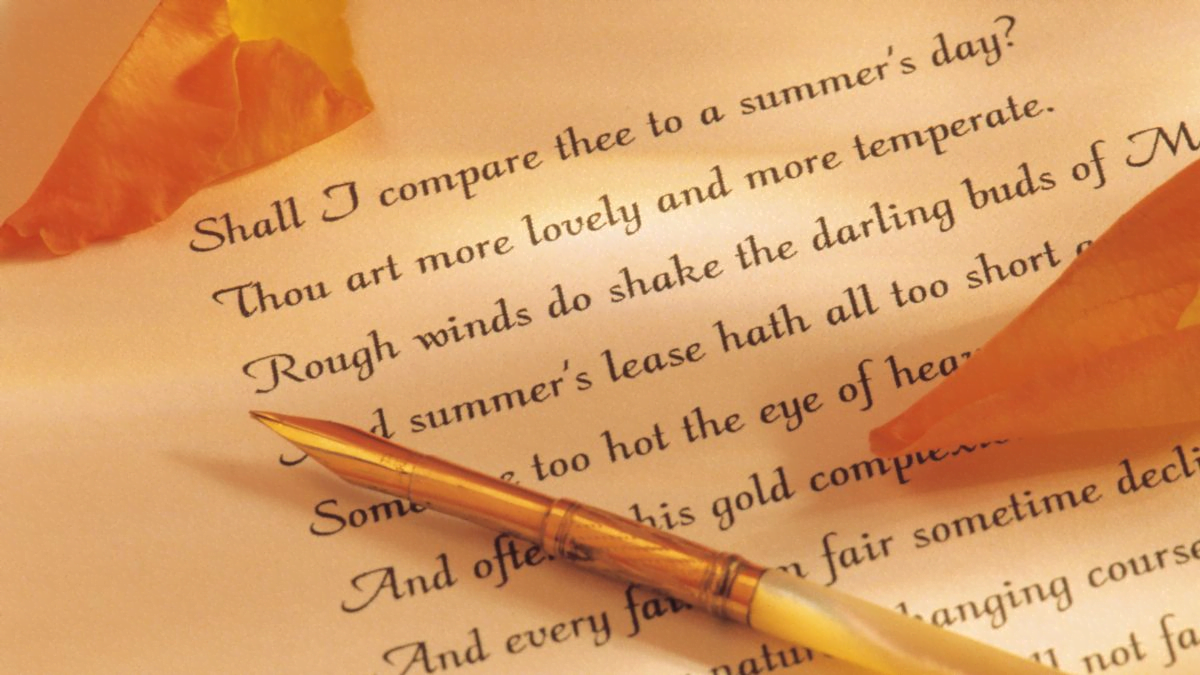 Shall I compare thee to a summer's day?
Thou art more lovely and more temperate.
Rough winds do shake the darling buds of
summer's lease hath all too short
too hot the eye of
And his gold
And every fair sometime
changing course
not